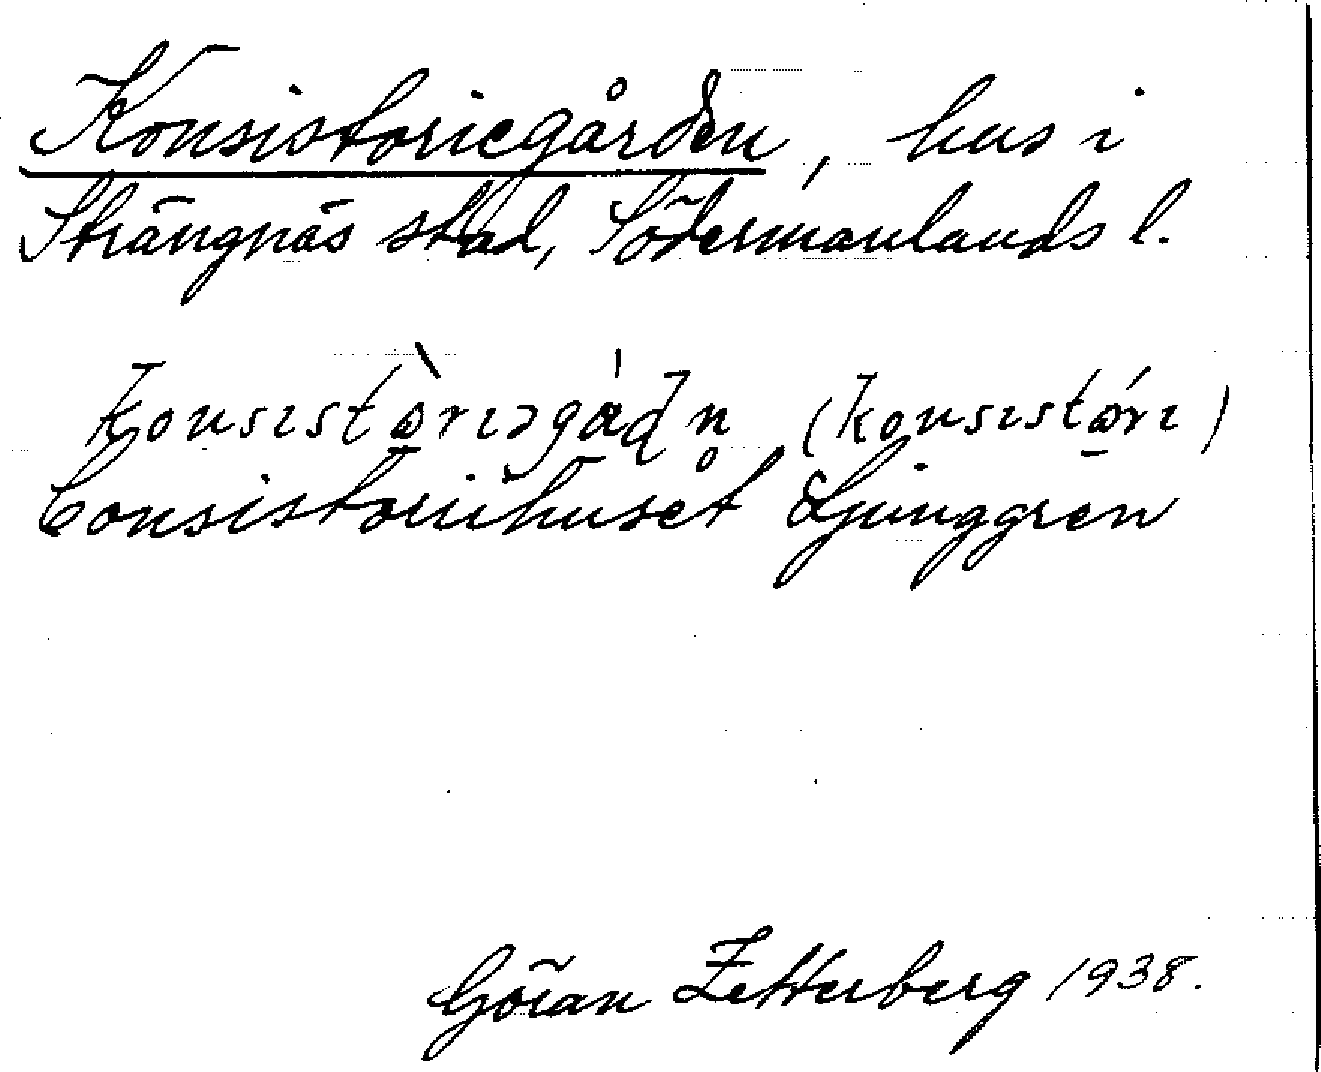 Konsistoriegården, hus i
Strängnäs stad, Södermanlands l.
konsıstə̀rıəgád̥n (konsıstə́rı)
Consistoriihuset Ljunggren
Göran Zetterberg 1938.